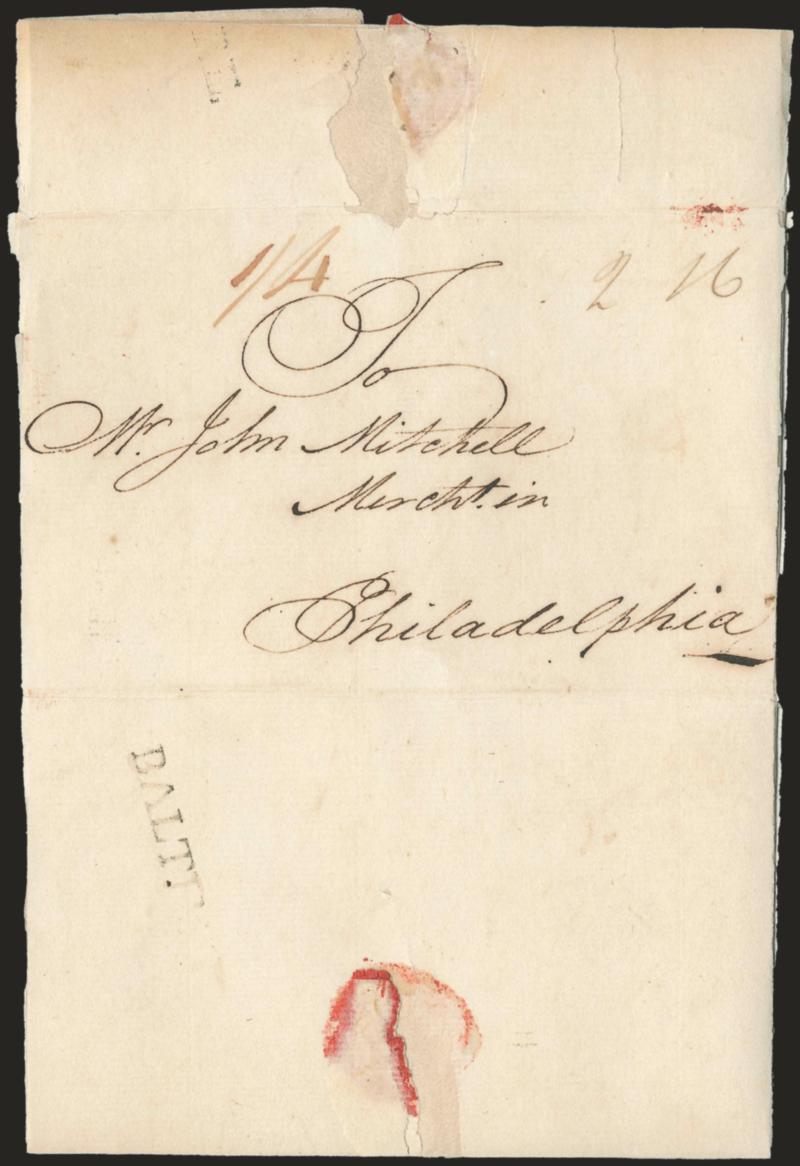 1/4
2 16
To
Mr. John Mitchell
Mercht. in
Philadelphia
BALTT